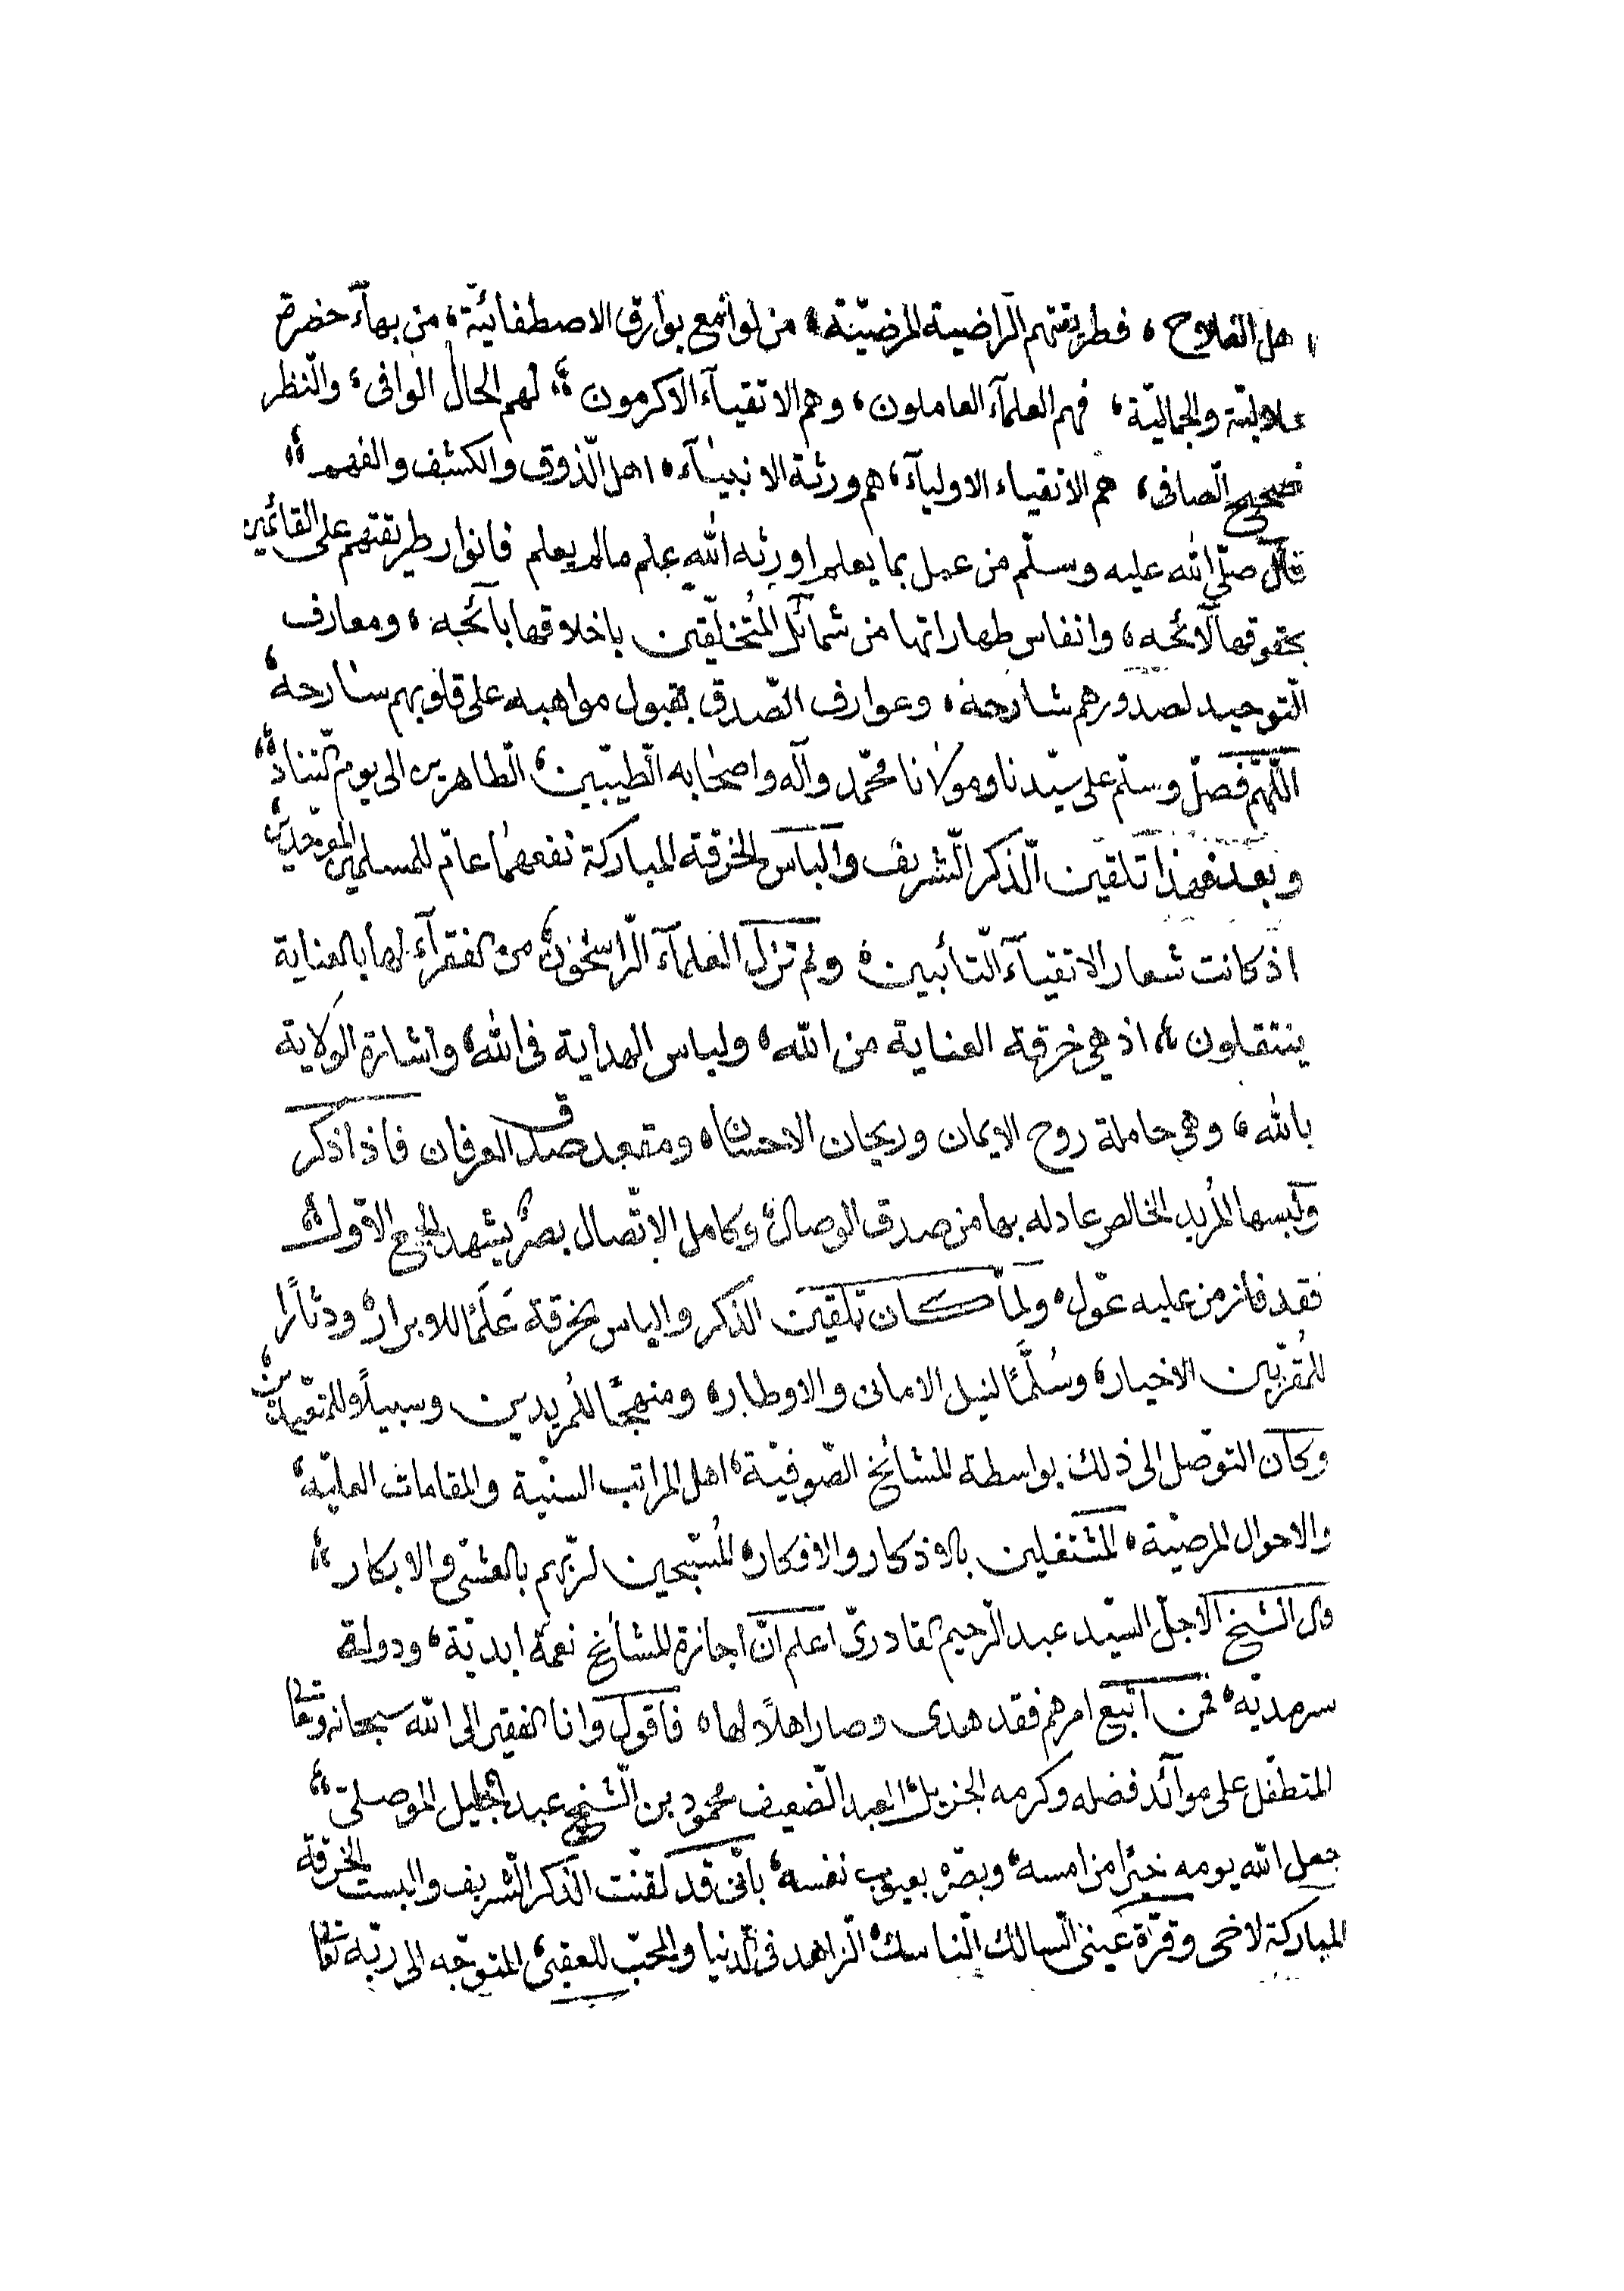 اهل الفلاح، فطريقتهم الراضية المرضيّة، من لوامع بوارق الاصطفائيّة، من بهآء حضرة
الجلاليّة والجماليّة، فهم العلمآء العاملون، وهم الاتقيآء الاكرمون، لهم الحال الوافى، والنّظر
الصحيح الصافى، هم الاتقياء الاوليآء، هم ورثة الانبيآء، اهل الذّوق والكشف والفهم،
قال صلّى الله عليه وسلّم من عمل بما يعلم اورثه الله علم مالم يعلم فانوار طريقتهم على القائمين
بحقوقها لآئحه، وانفاس طهاراتها من شمائل المُتخلّقين باخلاقها بآئحه، ومعارف
التّوحيد لصدورهم شارحة، وعوارف الصّدق بقبول مواهبه على قلوبهم سارحة،
اللّهمّ فصلّ وسلّم على سيّدنا ومولانا محمّد وآله واصحابه الطّيّبين، الطّاهرين الى يوم التّناد،
وبعد فهذا تلقين الّذكر الشّريف والباس الخرقة المباركة نفعهما عامّ للمسلمين الموحّدين،
اذ كانت شعار الاتقيآء التّائبين، ولم تزل العلمآء الرّاسخون، من الفقرآء لها بالعناية
ينتقلون، اذ هي خرقة العناية من الله، ولباس الهداية فى الله، واشارة الولاية
بالله، وهي حاملة روح الايمان وريحان الاحسان، ومقعد صدق العرفان فاذا ذكر
ولبسها المُريد الخالص عادله بها من صدق الوصال، وكامل الاتّصال بصرٌ يشهد الجمع الاوّل،
فقد فاز من عليه عوّل، ولمّا كان تلقين الذكر والباس الخرقة عَلَمًا للابرار، ودثارًا
للمُقرّبين الاخيار، وسُلَّمًا لنيل الامانى والاوطار، ومنهجًا للمُريدين وسبيلاً للمتعبّدين،
وكان التّوصّل الى ذلك بواسطة المشائخ الصّوفيّة، اهل المراتب السنيّة والمقامات العليّة،
والاحوال المرضيّة، المشتغلين بالاذكار والافكار، المُسبّحين لربّهم بالعشىّ والابكار،
قال الشيخ الاجلّ السيّد عبد الرّحيم القادرىّ اعلم انّ اجازة المشائخ نعمة ابديّة، ودولة
سرمديّه، فمن اتّبع امرهم فقد هدى وصار اهلاً لها، فاقول وانا الفقير الى الله سبحانه وتعالى
المتطفّل على موآئد فضله وكرمه الجزيل، العبد الضّعيف محمود بن الشّيخ عبد الجليل الموصلىّ،
جعل الله يومه خيرًا من امسه، وبصّره بعيوب نفسه، بانّى قد لقّنت الذّكر الشّريف والبست الخرقة
المباركة لاخى وقرّة عينى السالك النّاسك، الزاهد فى الدّنيا والمحبّ للعقبى، المتوجّه الى ربّه تعالى